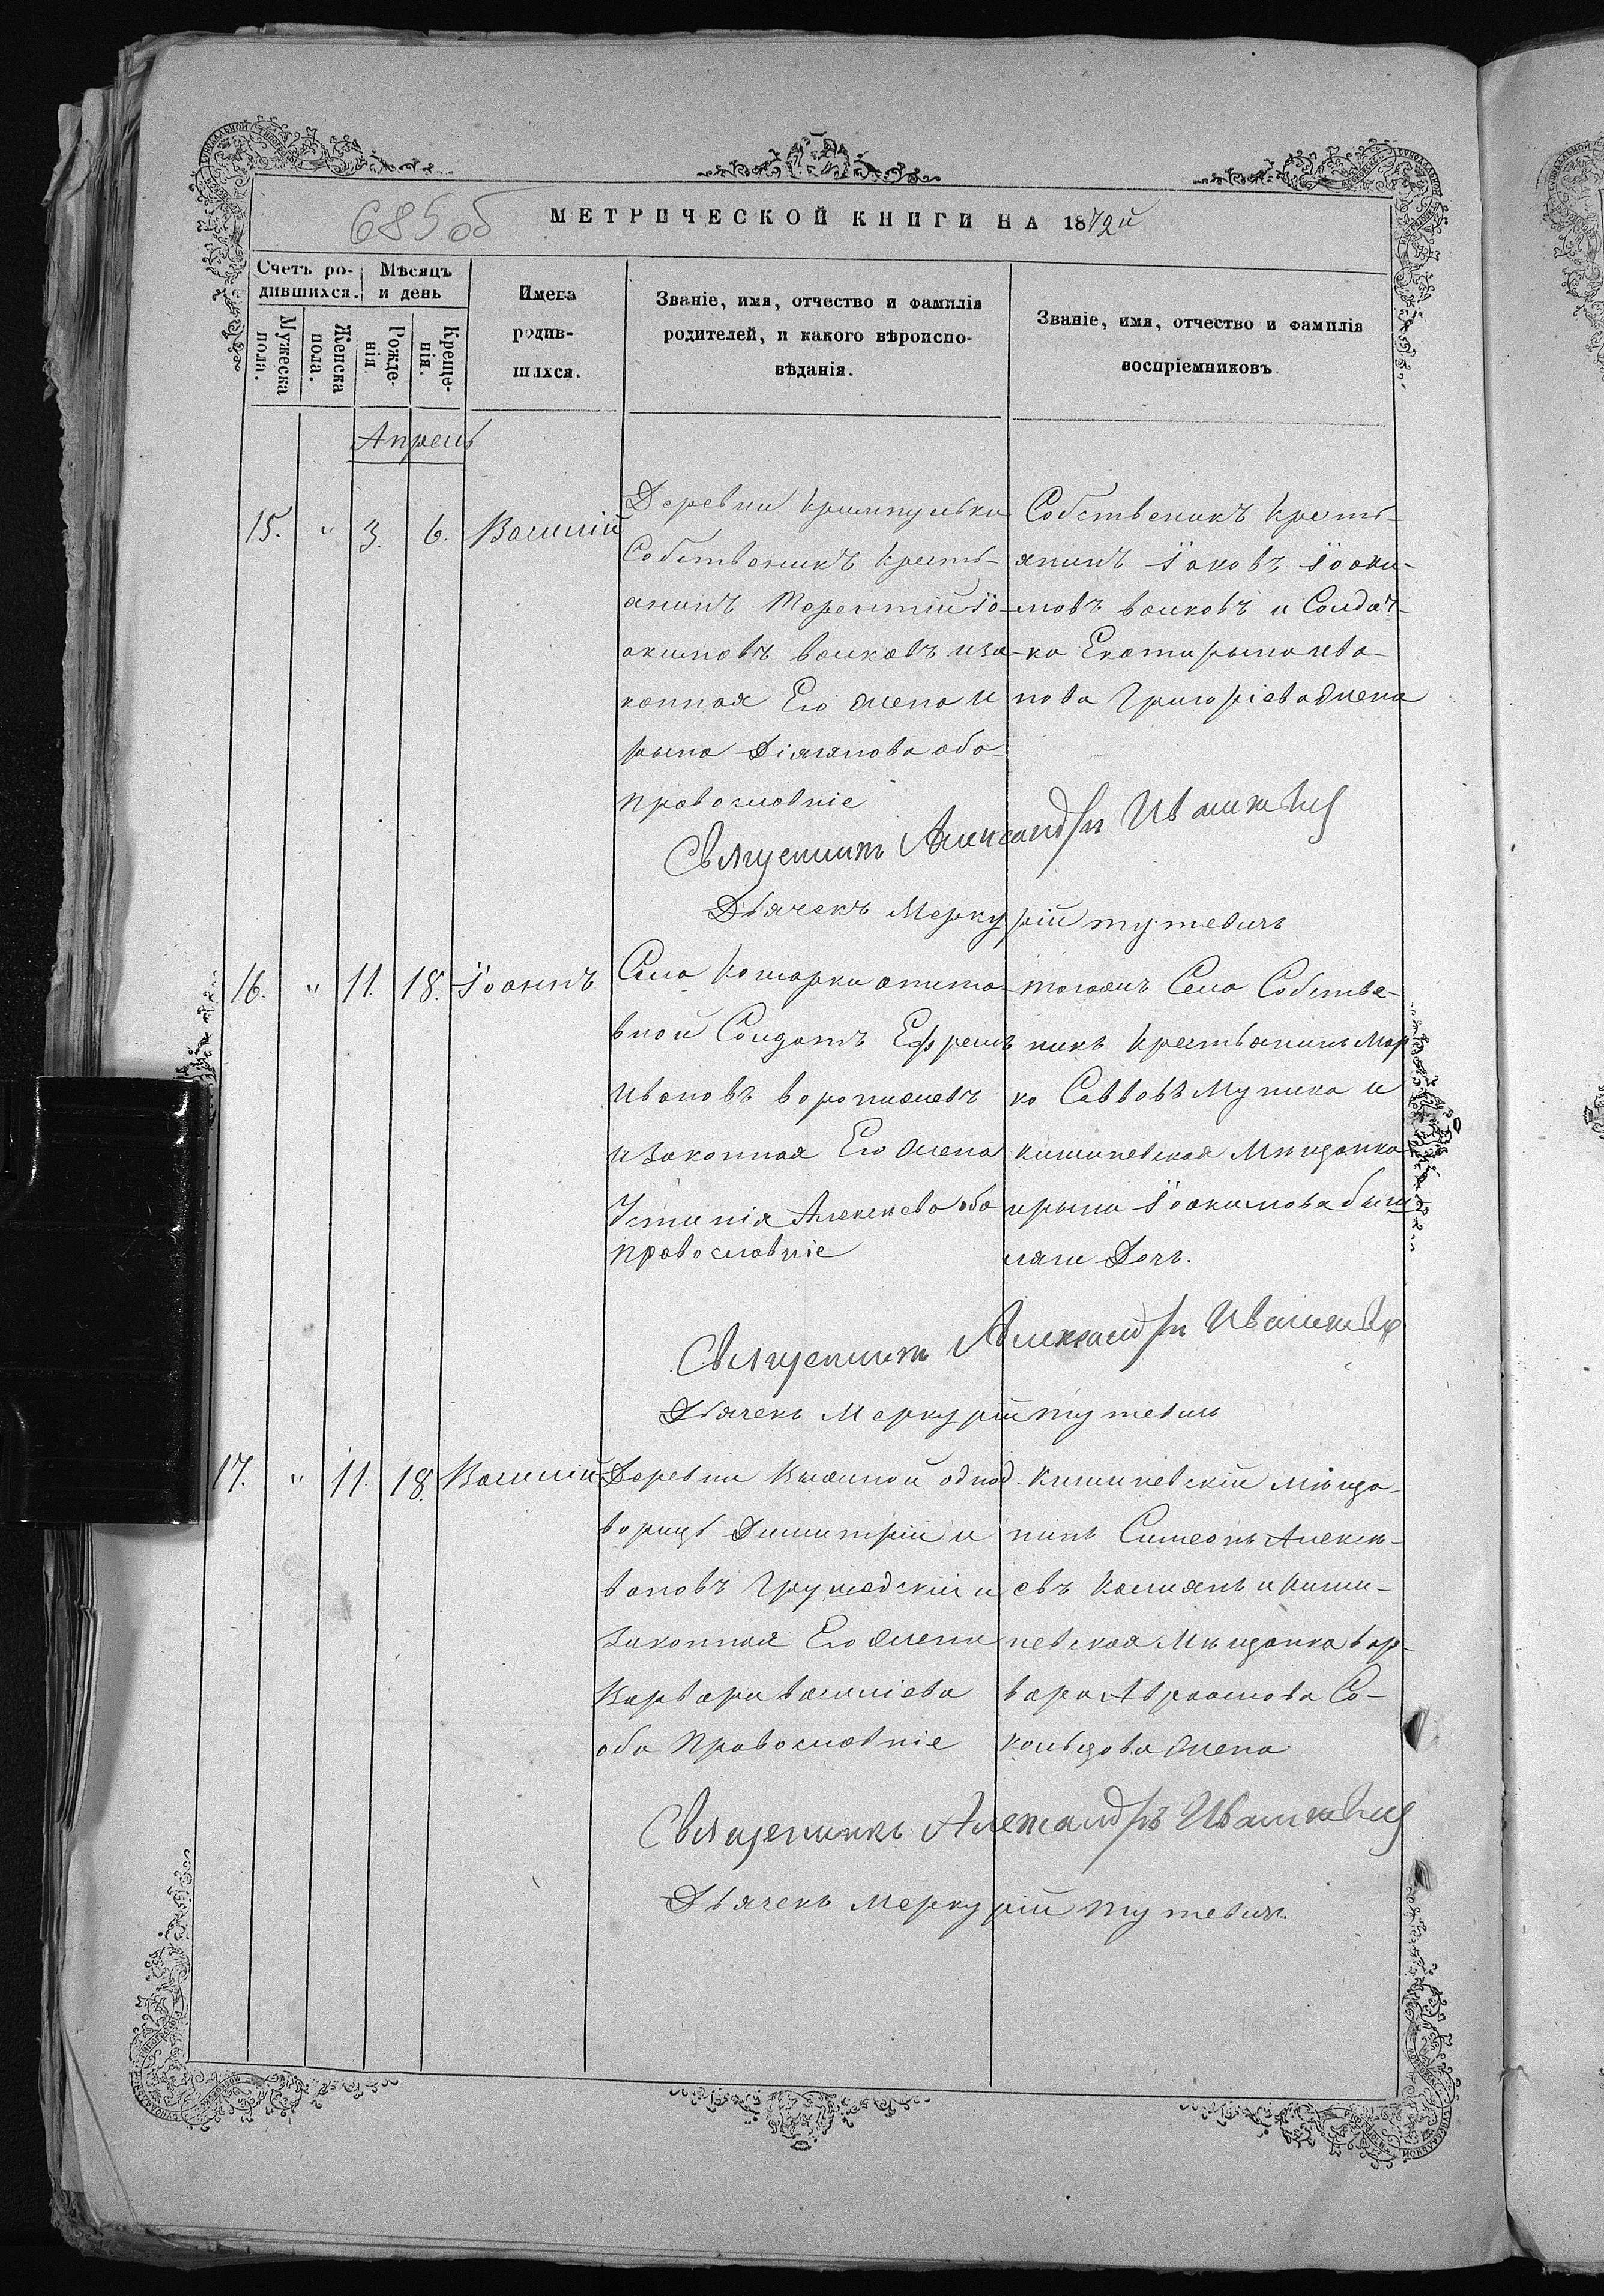 685 об
МЕТРИЧЕСКОЙ КНИГИ НА 1872й
Счетъ ро-
дившихся.
Мѣсяцъ
и день
Мужеска
пола.
Женска
пола.
Рожде-
нія
Креще-
нія.
Имена
родив-
шихся.
Званіе, имя, отчество и фамилія
родителей, и какого вѣроиспо-
вѣданія.
Званіе, имя, отчество и фамилія
воспріемниковъ.
Апрель
15. " 3. 6. Василій
Деревни
Собственикъ кресть-
янинъ Терентій Іо-
акимовъ волковъ иза-
конная Его жена И
рына обо-
православніе
Собственикъ Кресть-
янинъ Іаковъ Іоаки-
мовъ волковъ и Солдат-
ка Екатирына ива-
нова Григоріева жена
Священникъ Александръ Ивашкевич
Дьячекъ Меркурій тутевичъ
16. " 11. 18. Іоаннъ
Села Кошарки отста-
вной Солдатъ Ефремъ
Ивановъ
изаконная Его жена
Устинія Алексеева оба
православніе
тогожъ Села Собстве-
никъ Крестьянинъ Мар
ко Саввовъ Муника и
кишиневская Мещанка
ирына Іоакимова
Дочь.
Священникъ Александръ Ивашкевич
Дьячекъ Меркурій тутевичъ
17. " 11. 18. Василій
Деревни однод
ворецъ Димитрій и
вановъ и
Законная Его жена
Варвара василіева
оба Православніе
Кишиневскій мѣща-
нинъ Симеонъ Алексѣ-
евъ и Киши-
невская Мѣщанка вар-
вара Авраамова Со-
кольцова жена
Священникъ Александръ Ивашкевич
Дьячекъ Меркурій тутевичъ.